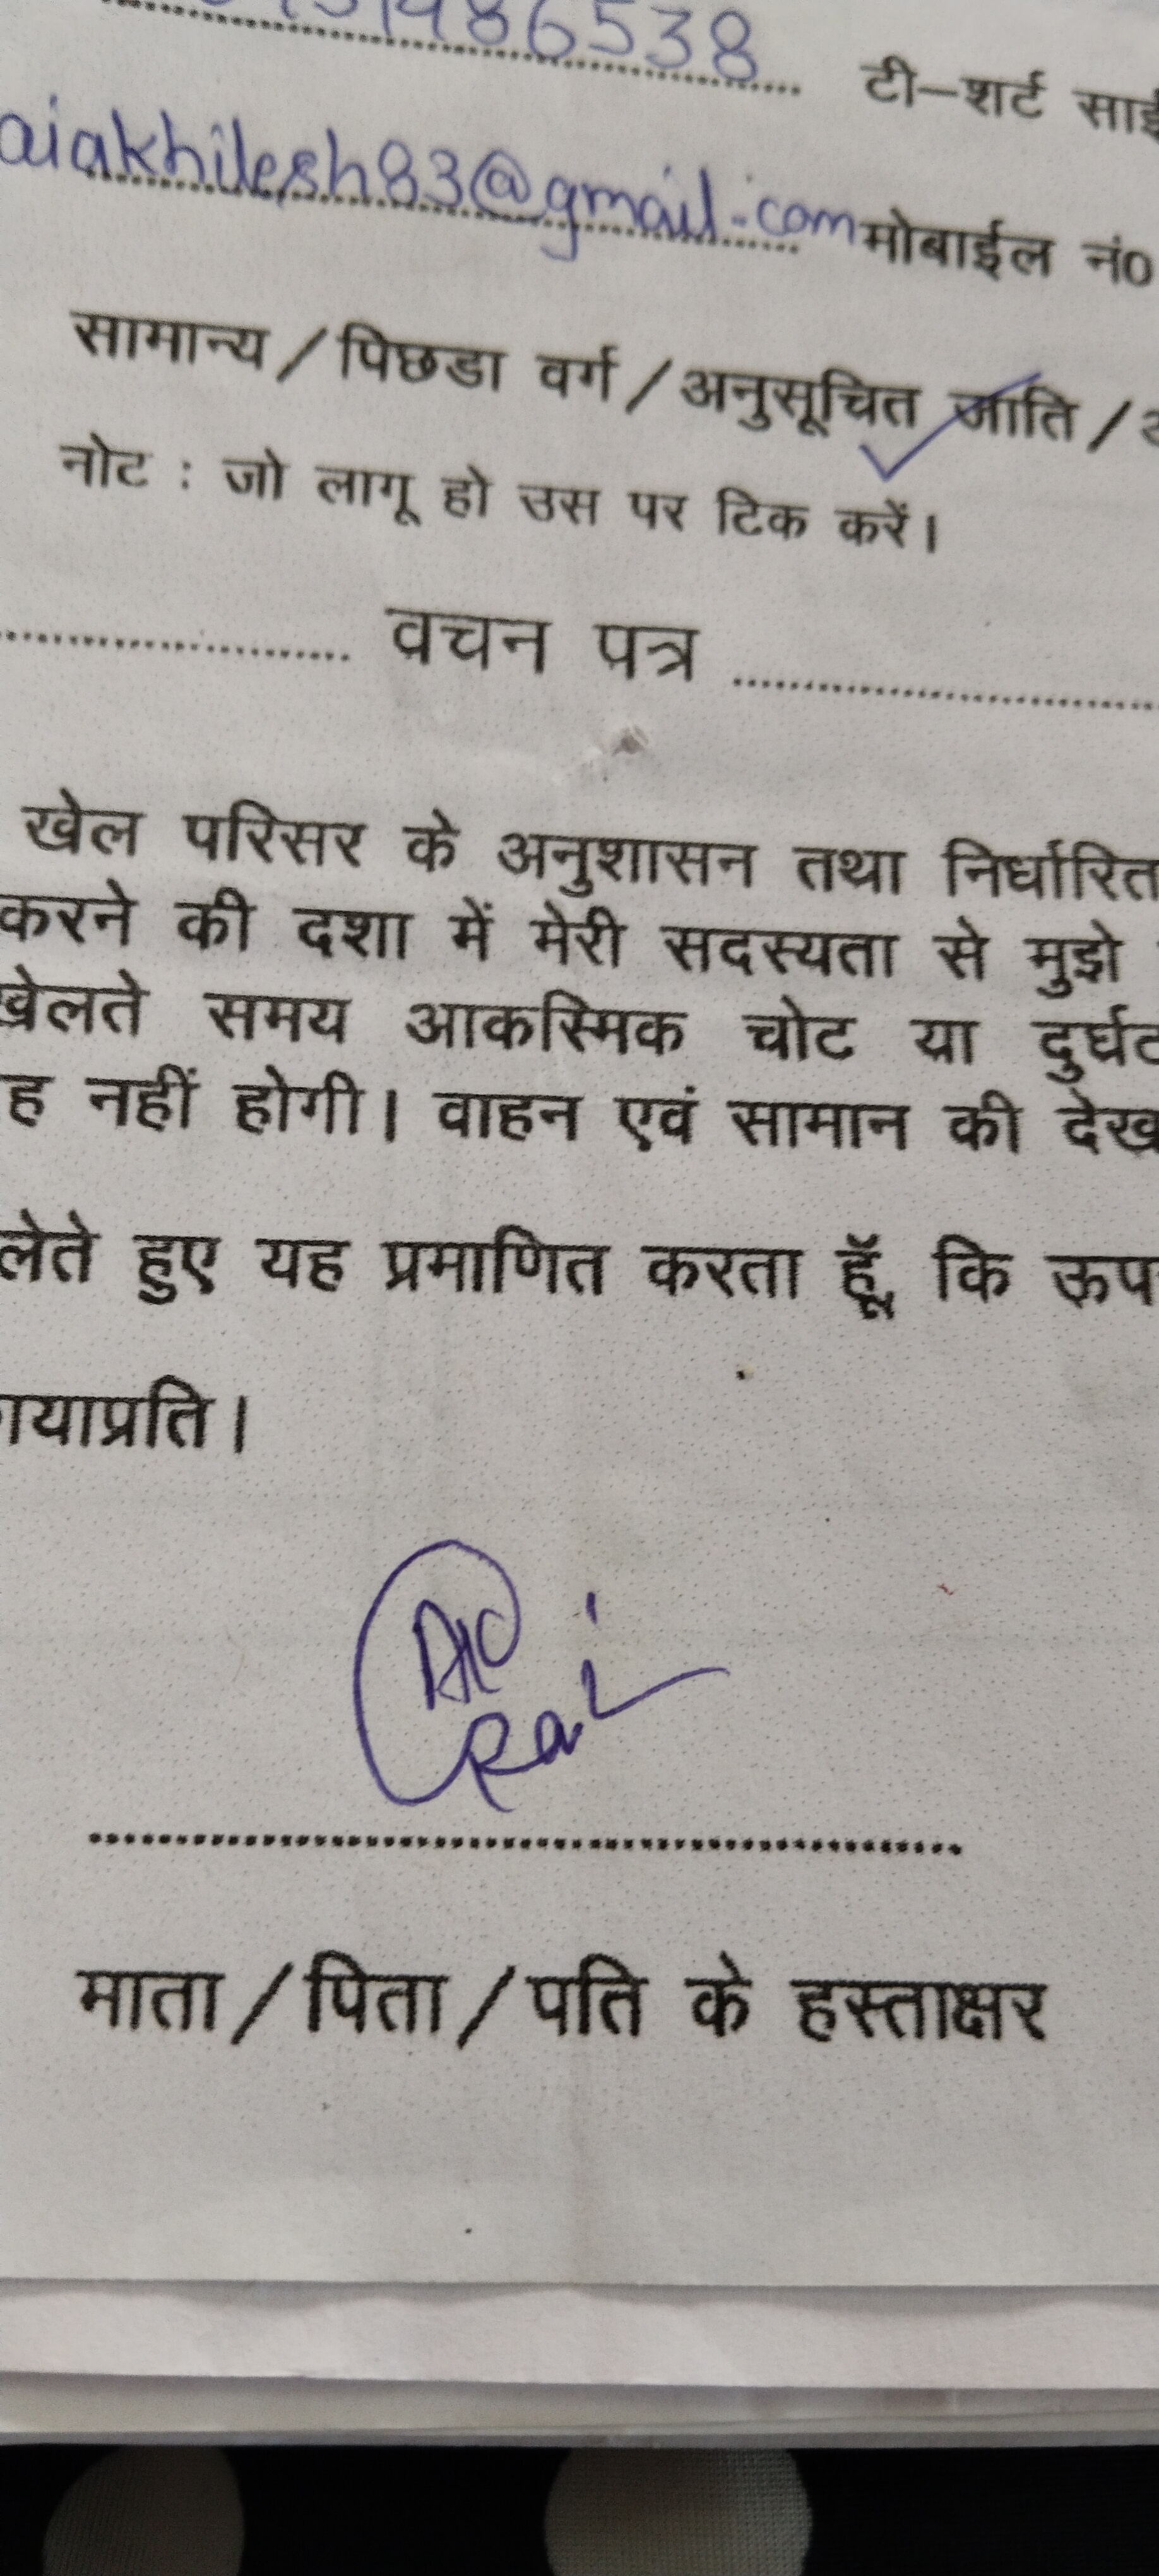 86538 टी-शर्ट
aiakhilesh83@gmail.com मोबाईल नं0
सामान्य/पिछडा वर्ग/अनुसूचित जाति/
नोट : जो लागू हो उस पर टिक करें।
वचन पत्र
खेल परिसर के अनुशासन तथा निर्धारित
करने की दशा में मेरी सदस्यता से मुझे
खेलते समय आकस्मिक चोट या
ह नहीं होगी। वाहन एवं सामान की देख
लेते हुए यह प्रमाणित करता हूॅ, कि
याप्रति।
Rai
माता/पिता/पति के हस्ताक्षर